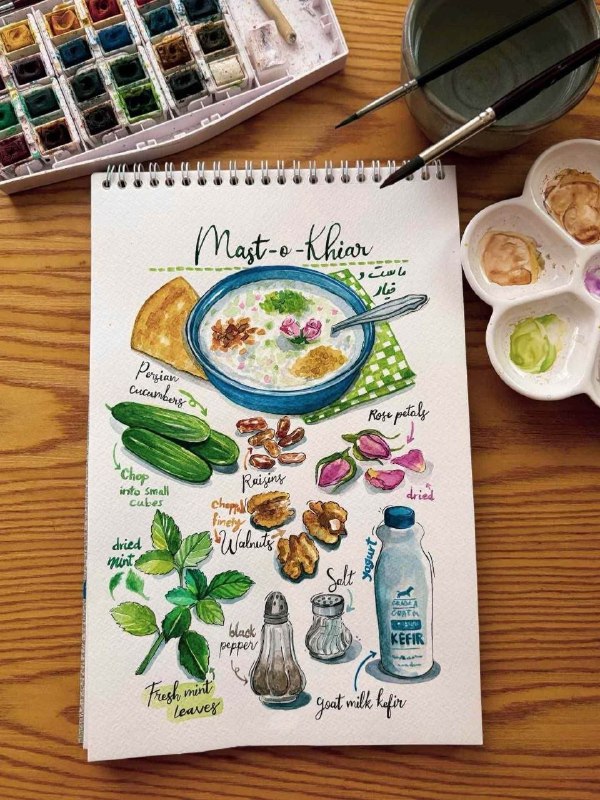 Mast-o-Khiar
ماست و
خیار
Persian
cucumbers
Rose petals
Chop
into small
cubes
Raisins
dried
chopped
finely
Walnuts
dried
mint
Yogurt
Salt
black
pepper
KEFIR
Fresh mint
leaves
goat milk kefir